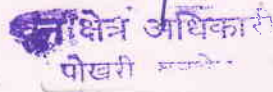 वनक्षेत्र अधिकारी
पोखरी